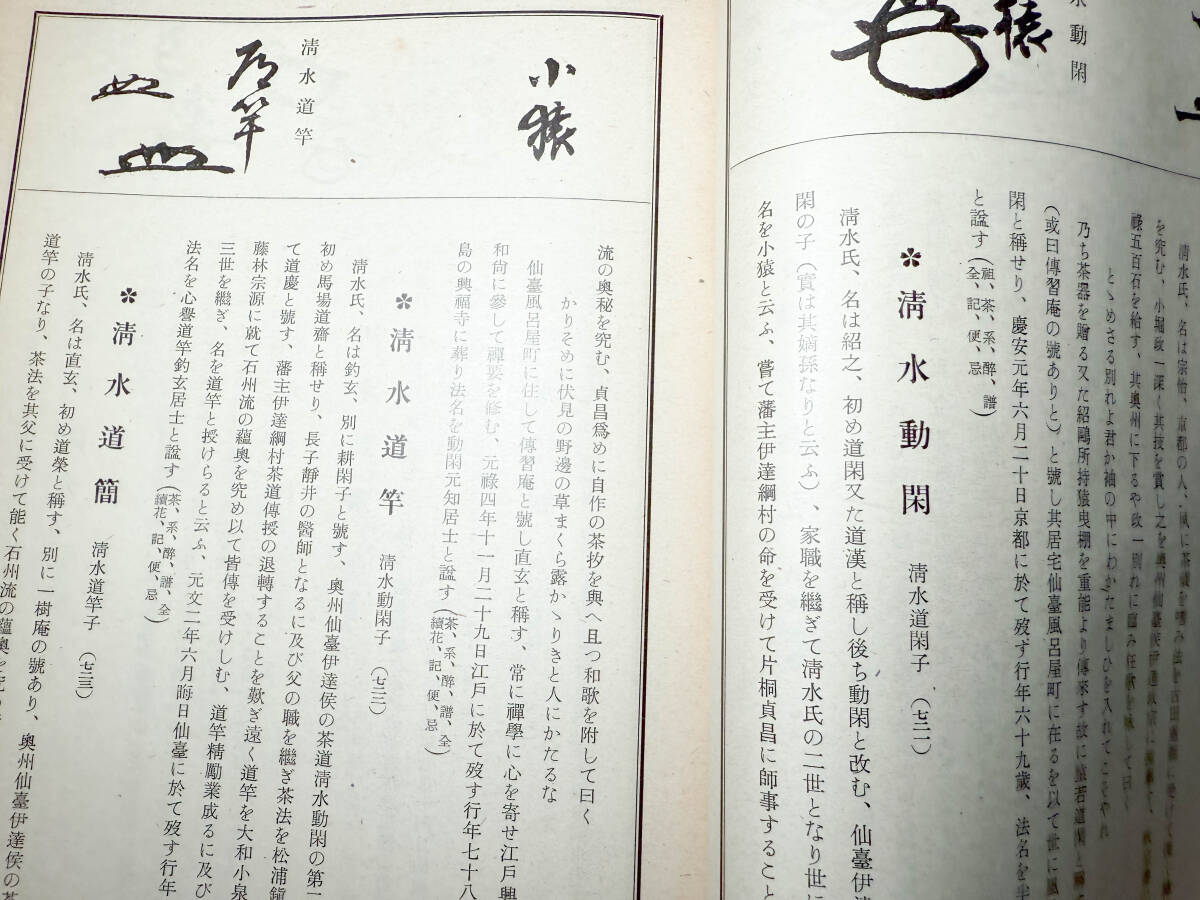 水動閑
猿
清水氏、名は宗怡、京都の人、夙に茶儀を嗜み法を古田重然に受けて
を究む、小堀政一深く其技を賞し之を奧州仙臺侯伊達政宗に
祿五百石を給す、其奧州に下るや政一別れに臨み狂歌を詠して曰く
とゞめさる別れよ君か袖の中にわかたましひを入れてこそやれ
乃ち茶器を贈る又た紹鷗所持猿曳棚を重能より傳來す故に
(或曰傳習庵の號ありと)と號し其居宅仙臺風呂屋町に在るを以て世に風
閑と稱せり、慶安元年六月二十日京都に於て歿す行年六十九歲、法名を
と諡す(祖、茶、系、醉、譜全、記、便、忌)
✽清水動閑 清水道閑子 (七二一)
清水氏、名は紹之、初め道閑又た道漢と稱し後ち動閑と改む、仙臺伊達
閑の子(實は其嫡孫なりと云ふ)、家職を繼ぎて清水氏の二世となり世に
名を小猿と云ふ、嘗て藩主伊達綱村の命を受けて片桐貞昌に師事すること
小猿
清水道竿
道竿
流の奧秘を究む、貞昌爲めに自作の茶抄を與へ且つ和歌を附して曰く
かりそめに伏見の野邊の草まくら露かゝりきと人にかたるな
仙臺風呂屋町に住して傳習庵と號し直玄と稱す、常に禪學に心を寄せ江戸興
和尙に參して禪要を修む、元祿四年十一月二十九日江戸に於て歿す行年七十八
島の興福寺に葬り法名を動閑元知居士と諡す(茶、系、醉、譜、全續花、記、便、忌)
✽清水道竿 清水動閑子 (七二二)
清水氏、名は釣玄、別に耕閑子と號す、奧州仙臺伊達侯の茶道清水動閑の第一
初め馬場道齋と稱せり、長子靜井の醫師となるに及び父の職を繼ぎ茶法を松浦鎭
て道慶と號す、藩主伊達綱村茶道傳授の退轉することを歎ぎ遠く道竿を大和小泉
藤林宗源に就て石州流の蘊奧を究め以て皆傳を受けしむ、道竿精勵業成るに及び
三世を繼ぎ、名を道竿と授けらると云ふ、元文二年六月晦日仙臺に於て歿す行年
法名を心譽道竿釣玄居士と諡す(茶、系、醉、譜、全續花、記、便、忌)
✽清水道簡 清水道竿子 (七二三)
清水氏、名は直玄、初め道榮と稱す、別に一樹庵の號あり、奧州仙臺伊達侯の茶
道竿の子なり、茶法を其父に受けて能く石州流の蘊奧を究め